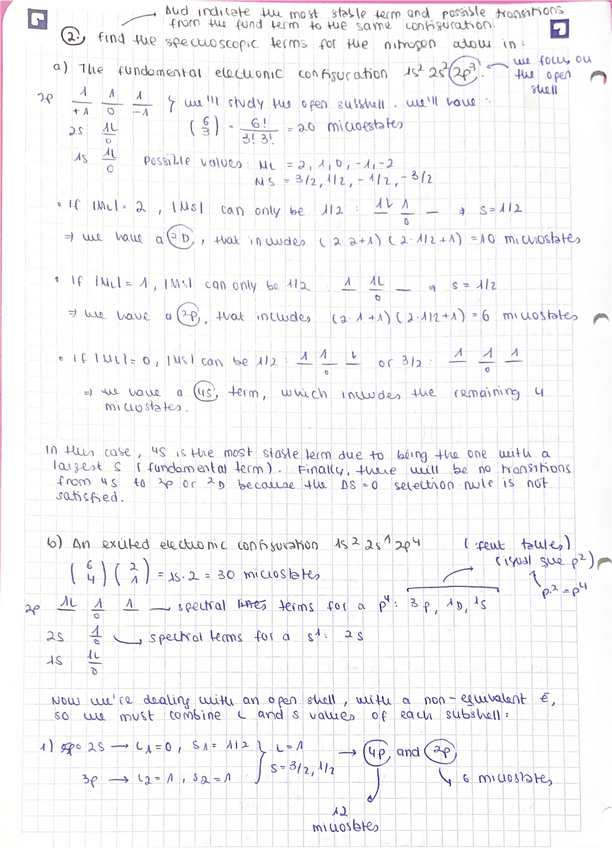 And indicate the most stable term and possible transitions
from the fund term to the same configuration.
2. Find the spectroscopic terms for the nitrogen atom in:
a) The fundamental electronic configuration 1s² 2s² 2p³. we focus on
the open
shell
2p 1 1 1 we'll study the open subshell. we'll have:
+1 0 -1
(6 3) = 6!/3!3! = 20 microestates
2s 1L
0
1s 1L
0
Possible values: ML = 2, 1, 0, -1, -2
MS = 3/2, 1/2, -1/2, -3/2
• If |ML| = 2, |MS| can only be 1/2: 1L 1 _ → S=1/2
0
⇒ we have a ²D, that includes (2·2+1)(2·1/2+1) = 10 microstates
• If |ML| = 1, |MS| can only be 1/2 1 1L _ → S = 1/2
0
⇒ we have a ²P, that includes (2·1+1)(2·1/2+1) = 6 microstates
• If |ML| = 0, |MS| can be 1/2: 1 1 L or 3/2: 1 1 1
0 0
⇒ we have a 4S, term, which includes the remaining 4
microstates.
In this case, 4S is the most stable term due to being the one with a
largest S (fundamental term). Finally, there will be no transitions
from 4S to ²P or ²D because the ΔS=0 selection rule is not
satisfied.
b) An excited electronic configuration 1s² 2s¹ 2p⁴ (fent taules)
(igual que p²)
(6 4)(2 1) = 15·2 = 30 microstates
p²=p⁴
2p 1L 1 1 → spectral terms for a p⁴: 3P, 1D, 1S
0
2s 1 → spectral terms for a s¹: 2S
0
1s 1L
0
Now we're dealing with an open shell, with a non-equivalent é,
so we must combine L and S values of each subshell:
1) 2S → L1=0, S1=1/2 L=1 → 4P and 2P
3P → L2=1, S2=1 S=3/2, 1/2 6 microstates
12
microstates